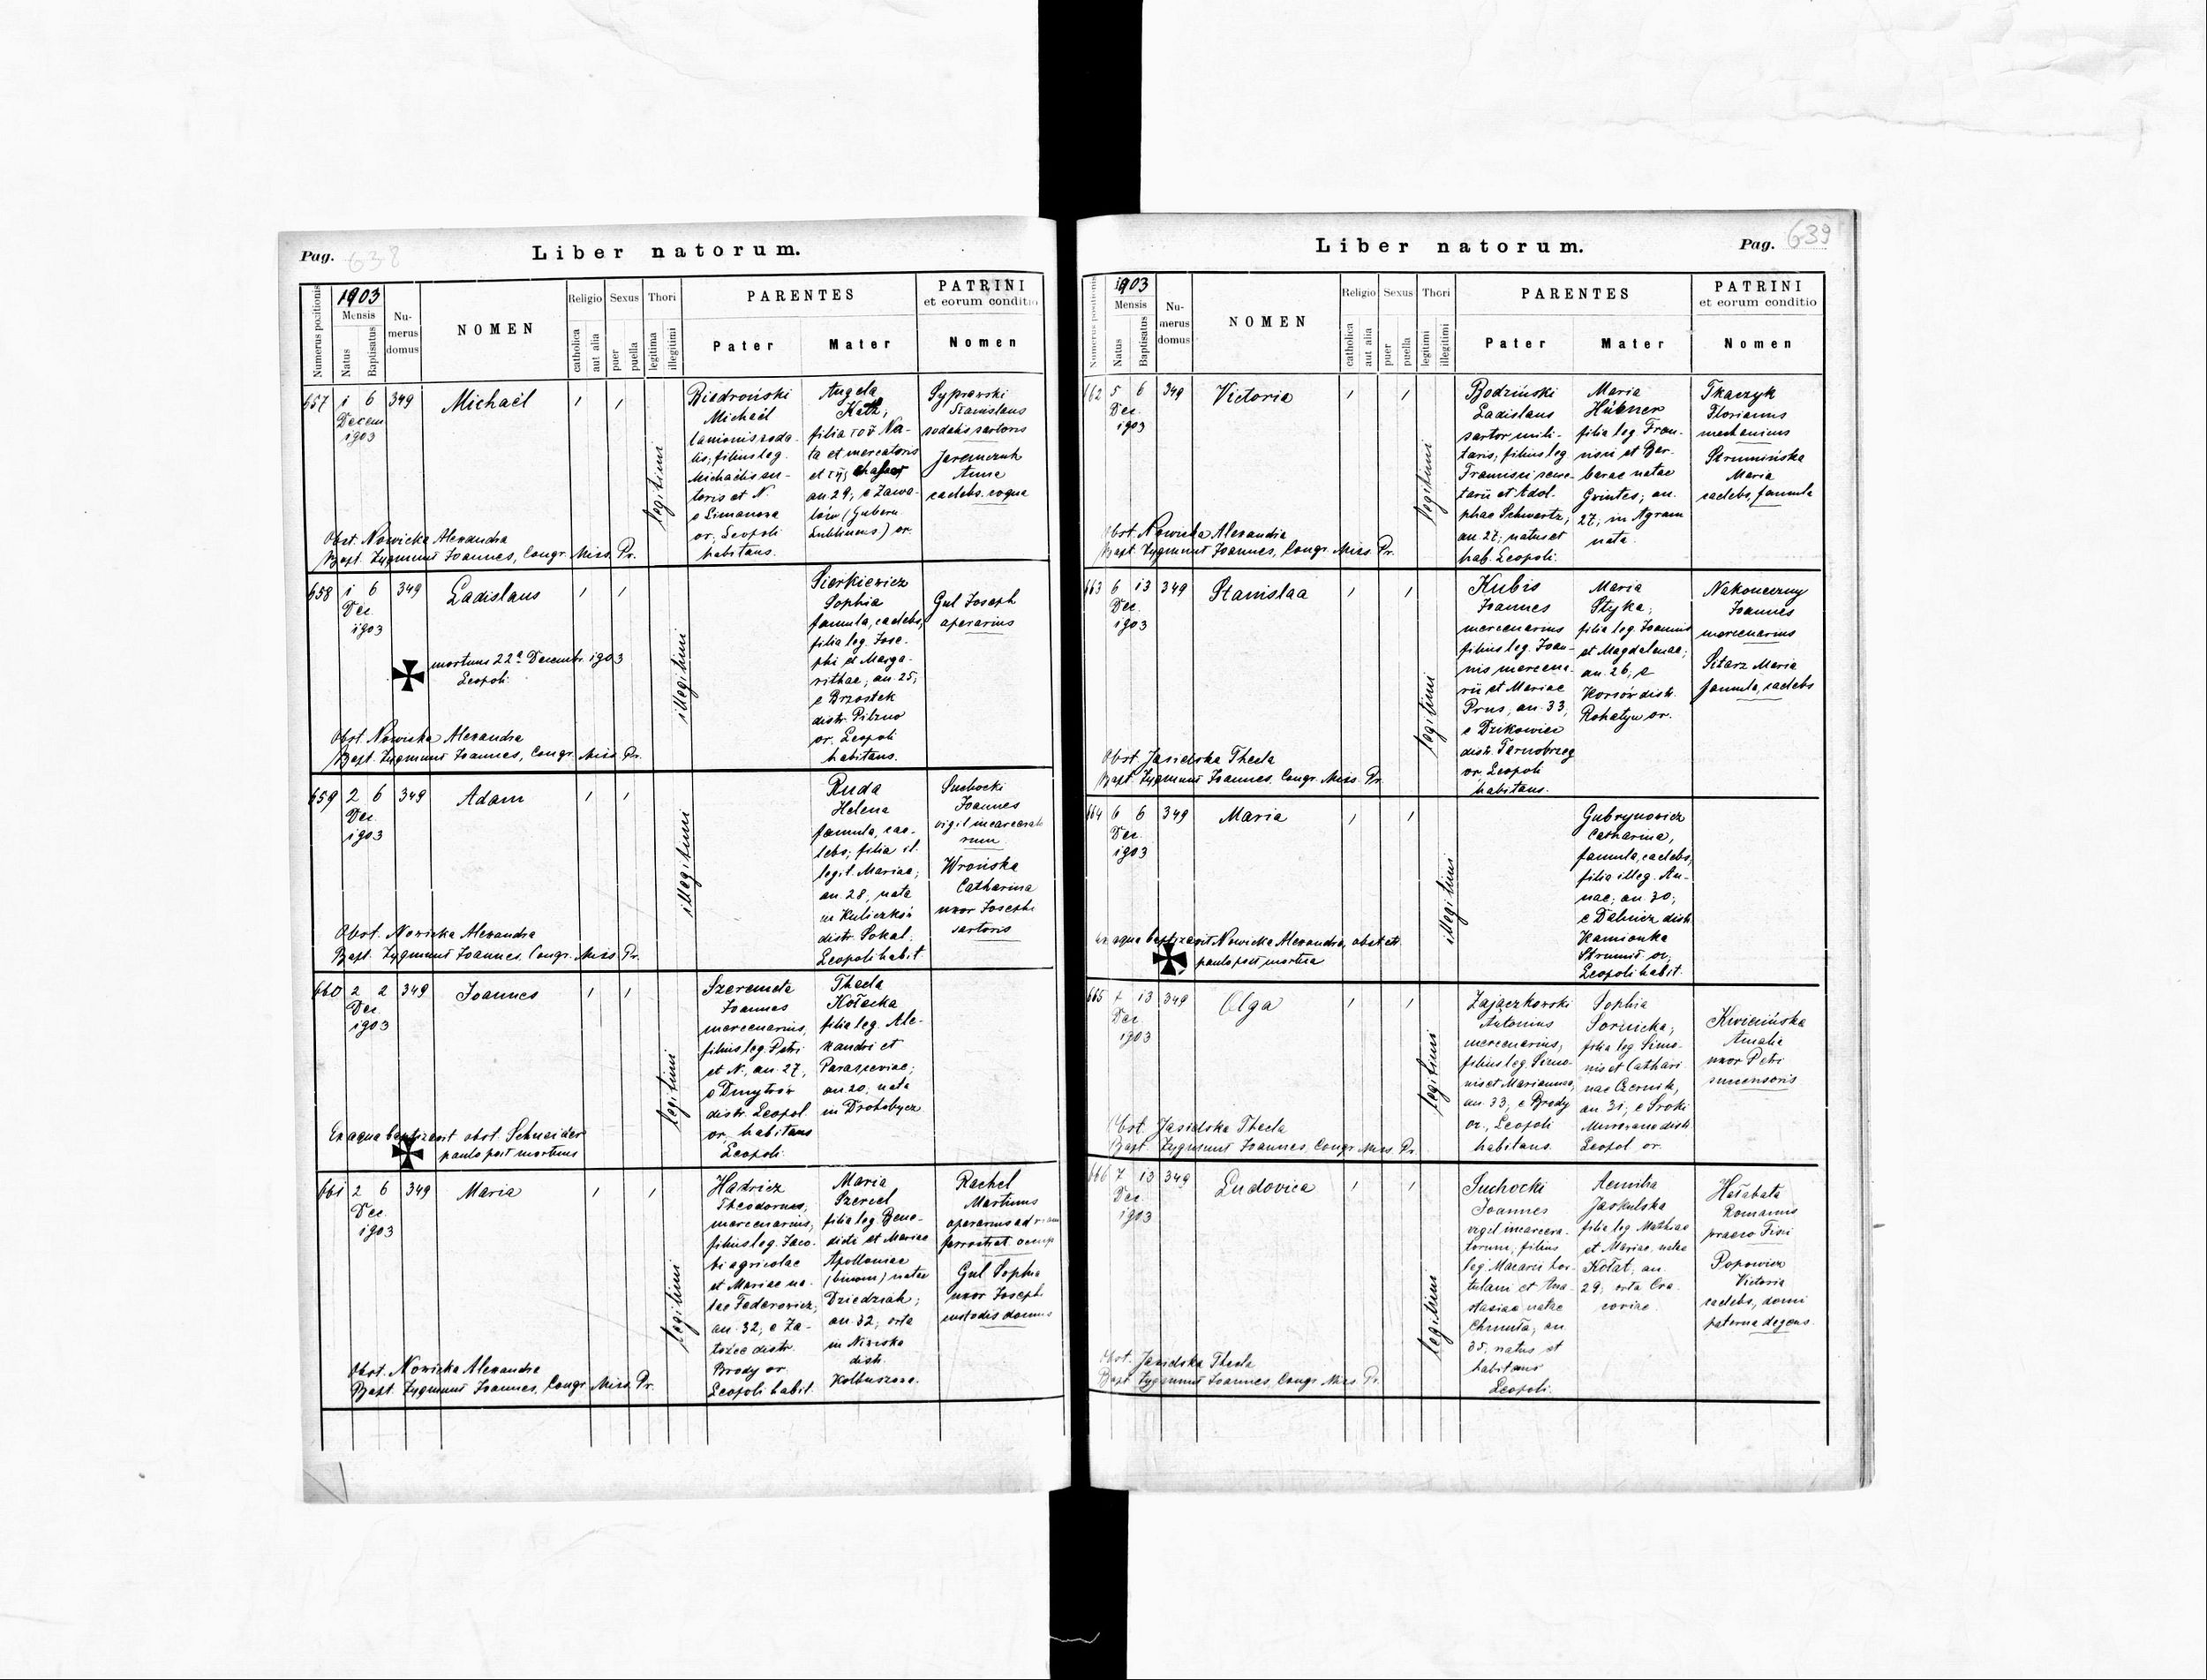 Pag. 638
Liber natorum.
Numerus positionis
1903
Mensis
Natus
Baptisatus
Nu-
merus
domus
NOMEN
Religio
catholica
aut alia
Sexus
puer
puella
Thori
legitima
illegitimi
PARENTES
Pater
Mater
PATRINI
et eorum conditio
Nomen
657
1 6
349
Decem
1903
Michaël
legitimi
Biedroński
Michaël
lanionis soda-
lis; filius leg.
Michaëlis
toris et N.
e Limanowa
or., Leopoli
habitans.
Angela
Katz,
filia Na-
ta et mercatoris
et
an. 29; e Zawa-
lów (Gubern
Lublinens) or.
Stanislaus
sodalis sartoris
Jaremczuk
Anna
caelebs, coqua
Obst. Nowicka Alexandra
Bapt. Zygmunt Joannes, Congr. Miss. Pr.
658
1 6
349
Dec.
1903
Ladislaus
mortuus 22ª Decembr. 1903
Leopoli
illegitimi
Sierkiewicz
Sophia
famula, caelebs,
filia leg. Jose-
phi et Marga-
rithae; an. 25;
e Brzostek
distr. Pilzno
or. Leopoli
habitans.
Gul Joseph
operarius
Obst. Nowicka Alexandra
Bapt. Zygmunt Joannes, Congr. Miss. Pr.
659
2 6
349
Dec.
1903
Adam
illegitimi
Ruda
Helena
famula, cae-
lebs; filia il-
legit. Mariae;
an. 28, nata
in Kuliczków
distr. Sokal.
Leopoli habit.
Suchocki
Joannes
vigil incarcerato
rum
Wrońska
Catharina
uxor Josephi
sartoris
Obst. Nowicka Alexandra
Bapt. Zygmunt Joannes, Congr. Miss. Pr.
660
2 2
349
Dec.
1903
Joannes
legitimi
Szeremeta
Joannes
mercenarius,
filius leg. Petri
et N., an. 27,
e Dmytrów
distr. Leopol
or., habitans
Leopoli.
Thecla
Kołacka
filia leg. Ale-
xandri et
Parasceviae;
an 20. nata
in Drohobycz
Ex aqua baptizavit obst. Schneider
paulo post mortuus
661
2 6
349
Dec.
1903
Maria
legitimi
Hadricz
Theodorus,
mercenarius;
filius leg. Jaco-
bi agricolae
et Mariae na-
tae Fedorowicz;
an. 32; e Za-
łoźce distr.
Brody or.
Leopoli habit.
Maria
Szerel
filia leg. Bene-
dicti et Mariae
Apolloniae
(binom) natae
Dziedziak;
an. 32, orta
in Niwiska
distr.
Kolbuszowa.
Rachel
Martinus
operarius ad viam
ferrostrat. occup
Gul Sophia
uxor Joseph
custodis domus
Obst. Nowicka Alexandra
Bapt. Zygmunt Joannes, Congr. Miss. Pr.
Liber natorum.
Pag. 639
Numerus positionis
1903
Mensis
Natus
Baptisatus
Nu-
merus
domus
NOMEN
Religio
catholica
aut alia
Sexus
puer
puella
Thori
legitimi
illegitimi
PARENTES
Pater
Mater
PATRINI
et eorum conditio
Nomen
662
5 6
349
Dec.
1903
Victoria
legitimi
Bodziński
Ladislaus
sartor mili-
taris; filius leg
Francisci secre-
tarii et Adol-
phae Schwartz;
an. 27; natus et
hab. Leopoli.
Maria
Hübner
filia leg. Fran-
cisci et Bar-
barae natae
Gwintes; an.
27; in Agram
nata.
Tkaczyk
Florianus
mechanicus
Strumińska
Maria
caelebs, famula
Obst. Nowicka Alexandra
Bapt. Zygmunt Joannes, Congr. Miss. Pr.
663
6 13
349
Dec.
1903
Stanislaa
legitimi
Kubis
Joannes
mercenarius
filius leg. Joan-
nis mercena-
rii et Mariae
Prus, an. 33;
e Dzikowiec
distr. Tarnobrzeg
or. Leopoli
habitans.
Maria
Styka;
filia leg. Joannis
et Magdalenae;
an. 26; e
Korsów distr.
Rohatyn or.
Nakoneczny
Joannes
mercenarius
Sitarz Maria
famula, caelebs
Obst. Jasielska Thecla
Bapt. Zygmunt Joannes, Congr. Miss. Pr.
664
6 6
349
Dec.
1903
Maria
illegitimi
Gubrynowicz
Catharina,
famula, caelebs,
filia illeg. An-
nae; an. 30;
e Dalnicz distr
Kamionka
Strumił. or.
Leopoli habit.
Ex aqua baptizavit Nowicka Alexandra, obstetr.
paulo post mortua
665
7 13
349
Dec
1903
Olga
legitimi
Zajączkowski
Antonius
mercenarius;
filius leg. Simo-
nis et Mariannae,
an. 33; e Brody
or., Leopoli
habitans.
Sophia
Sornicka;
filia leg Simo-
nis et Cathari
nae Czernik;
an. 31; e Sroki
distr.
Leopol or.
Kwicińska
Amalia
uxor Petri
succensoris
Obst. Jasielska Thecla
Bapt. Zygmunt Joannes, Congr. Miss. Pr.
666
7 13
349
Dec.
1903
Ludovica
legitimi
Suchocki
Joannes
vigil incarcera-
torum; filius
leg. Macarii hor-
tulani et Ana-
stasiae natae
Chmuła, an
35; natus et
habitans
Leopoli.
Aemilia
Jaskulska
filia leg Mathiae
et Mariae, natae
Kołat, an.
29; orta Cra-
coviae.
Hałabala
Romanus
praeco Fisci
Popowicz
Victoria
caelebs, domi
paterna degens.
Obst. Jasielska Thecla
Bapt. Zygmunt Joannes, Congr. Miss. Pr.